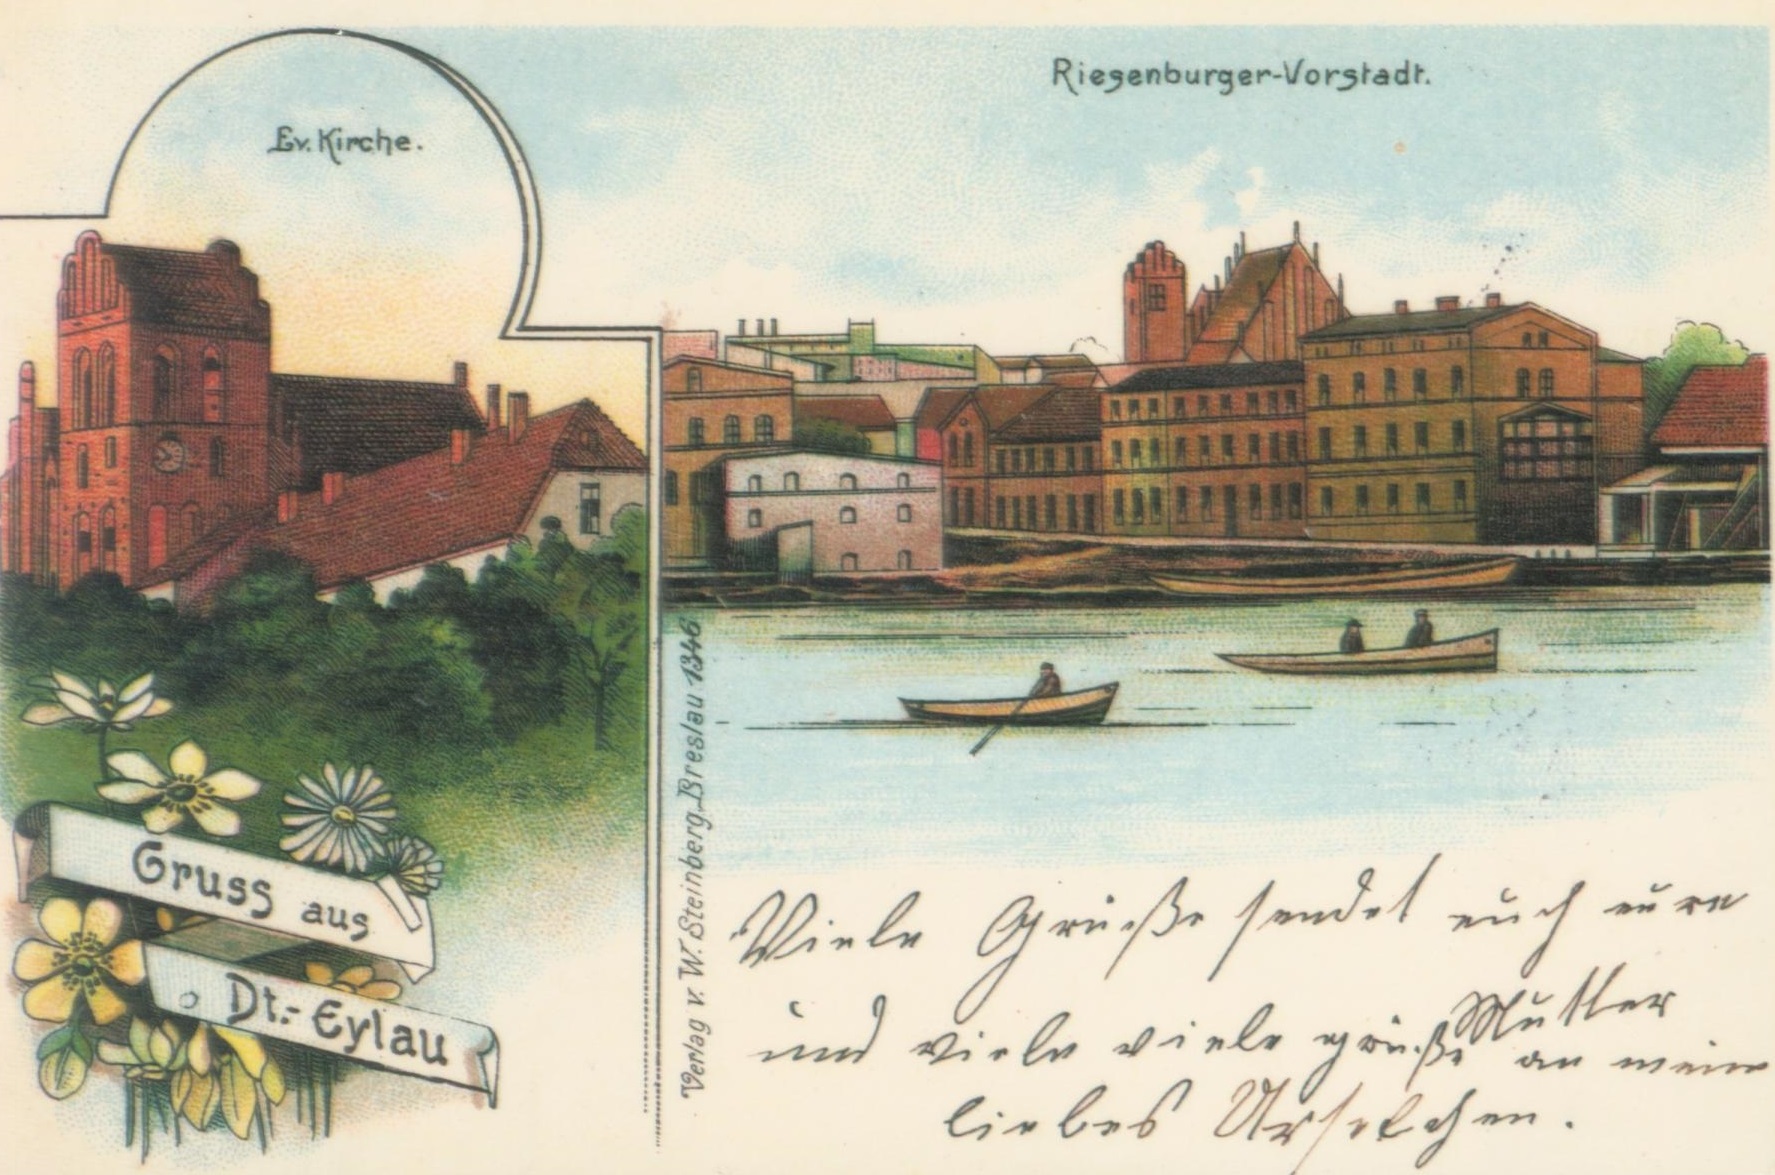 Ev. Kirche.
Riesenburger-Vorstadt.
Gruss aus
Dt.-Eylau
Verlag v. W. Steinberg, Breslau 1346
Viele Grüße sendet euch eure
Mutter
und viele viele grüße an mein
liebes Urselchen.